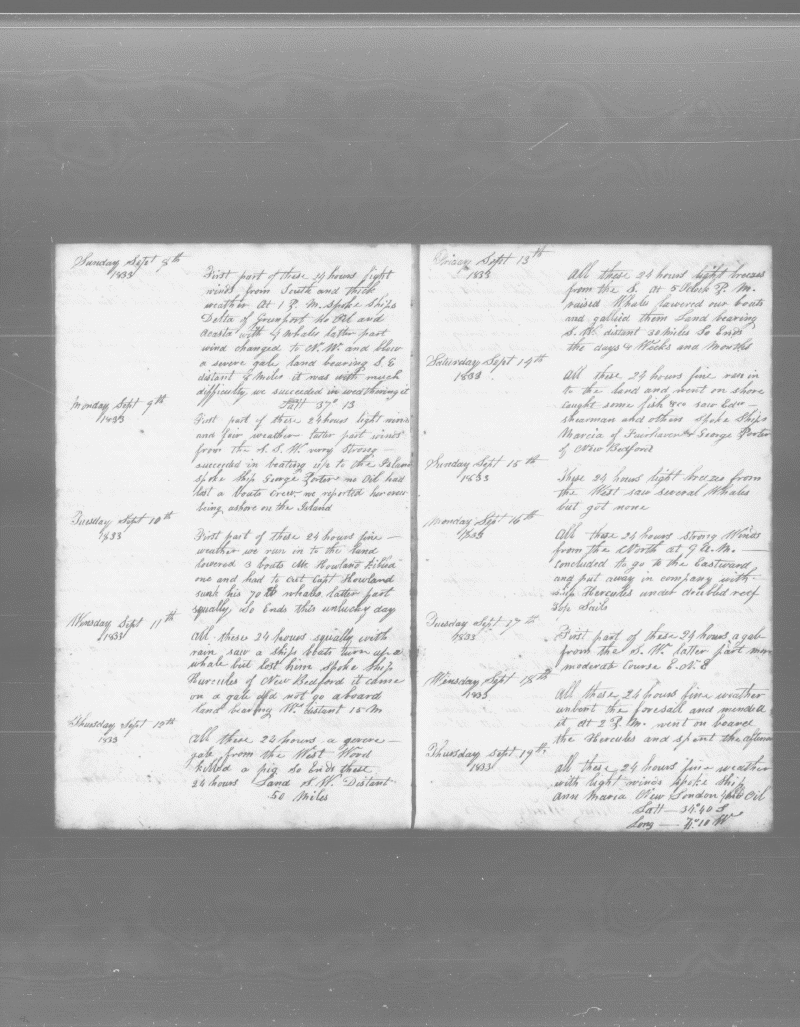 Sunday Sept 8th
1833
First part of these 24 hours light
winds from South and thick
weather At 1 P. M. spoke ships
Delta of Greenport No Oil and
Acasta with 4 whales latter part
wind changed to N. W. and blew
a severe gale land bearing S. E
distant 8 miles it was with much
difficulty we succeeded in weathering it
Latt 37° 13
Monday Sept 9th
1833
First part of these 24 hours light winds
and fair weather latter part winds
from the S. S. W. very strong
succeeded in beating up to the Island
spoke ship George Porter no Oil had
lost a boats crew we reported her crew
being ashore on the Island
Tuesday Sept 10th
1833
First part of these 24 hours fine
weather we run in to the land
lowered 3 boats Mr Howland killed
one and had to cut Capt Howland
sunk his 70 bb whales latter part
squally So Ends this unlucky day
Wensday Sept 11th
1833
All these 24 hours squally with
rain saw a ships boats turn up a
whale but lost him spoke ship
Hercules of New Bedford it came
on a gale did not go aboard
land bearing W. distant 15 M
Thursday Sept 12th
1833
All these 24 hours a severe
gale from the West Word
killed a pig so Ends these
24 hours Land S. W. Distant
50 Miles
Friday Sept 13th
1833
All these 24 hours light breezes
from the S. At 5 Oclock P. M.
raised Whales lowered our boats
and gallied them Land bearing
S. W. distant 30 Miles So Ends
the days & Weeks and Months
Saturday Sept 14th
1833
All these 24 hours fine run in
to the land and went on shore
caught some fish &c saw Edw
shearman and others spoke Ships
Marcia of Fairhaven & George Porter
of New Bedford
Sunday Sept 15th
1833
These 24 hours light breezes from
the West saw several Whales
but got none
Monday Sept 16th
1833
All these 24 hours strong Winds
from the North at 9 A. M.
concluded to go to the Eastward
and put away in company with
ship Hercules under doubled reef
top Sails
Tuesday Sept 17th
1833
First part of these 24 hours a gale
from the S. W. latter part more
moderate Course E. N. E
Wensday Sept 18th
1833
All these 24 hours fine weather
unbent the foresail and mended
it At 2 P. M. went on board
the Hercules and spent the afternoon
Thursday Sept 19th
1833
all these 24 hours fine weather
with light winds spoke ship
Ann Maria New London bbls Oil
Latt — 34° 40 S
Long — 10 W